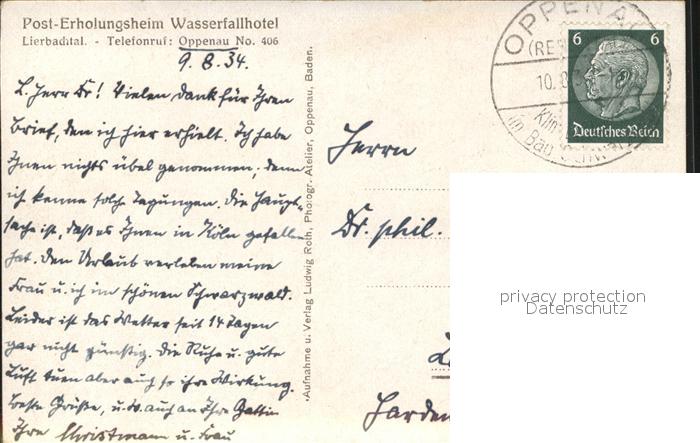 Post-Erholungsheim Wasserfallhotel
Lierbachtal. - Telefonruf: Oppenau No. 406
9. 8. 34.
L. Herr Dr! Vielen Dank für Ihren
Brief, den ich hier erhielt. Ich habe
Ihnen nichts übel genommen, denn
ich kenne solche Tagungen. Die Haupt-
sache ist, daß es Ihnen in Köln gefallen
hat. Den Urlaub verleben meine
Frau u. ich im schönen Schwarzwald.
Leider ist das Wetter seit 14 Tagen
gar nicht günstig. Die Ruhe u. gute
Luft tuen aber auch so ihre Wirkung.
Beste Grüße, u. zw. auch an Ihre Gattin
Ihre Christmann u. Frau
·Aufnahme u. Verlag Ludwig Roth, Photogr. Atelier, Oppenau, Baden.
OPPENAU
(RE
10. 8
im Bad
6 6
Deutsches Reich
Herrn
Dr. phil.
privacy protection
Datenschutz
Harden